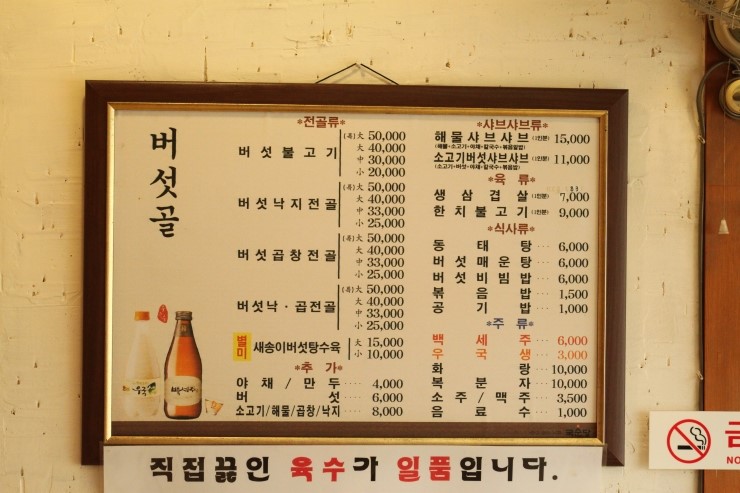 버섯골
*전골류*
버섯불고기 (특)大 50,000
大 40,000
中 30,000
小 20,000
버섯낙지전골 (특)大 50,000
大 40,000
中 33,000
小 25,000
버섯곱창전골 (특)大 50,000
大 40,000
中 33,000
小 25,000
버섯낙·곱전골 (특)大 50,000
大 40,000
中 33,000
小 25,000
별미 새송이버섯탕수육 大 15,000
小 10,000
*추 가*
야채/만두 ···· 4,000
버 섯 ···· 6,000
소고기/해물/곱창/낙지 ···· 8,000
*샤브샤브류*
해물샤브샤브 (1인분) 15,000
(해물·소고기·야채·칼국수·볶음밥)
소고기버섯샤브샤브 (1인분) 11,000
(소고기·버섯·야채·칼국수·볶음밥)
*육 류*
생삼겹살 (1인분) 7,000
한치불고기 (1인분) 9,000
*식사류*
동태탕 ···· 6,000
버섯매운탕 ···· 6,000
버섯비빔밥 ···· 6,000
볶음밥 ···· 1,500
공기밥 ···· 1,000
*주 류*
백세주 ···· 6,000
우국생 ···· 3,000
화랑 ···· 10,000
복분자 ···· 10,000
소주/맥주 ···· 3,500
음료수 ···· 1,000
직접끓인 육수가 일품입니다.
금
NO